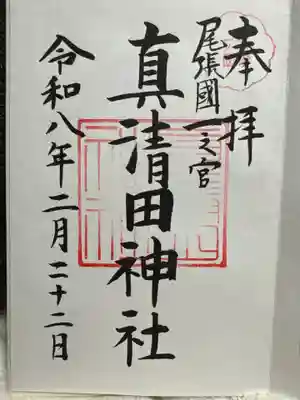 奉拝
尾張國一之宮
真清田神社
令和八年二月二十二日